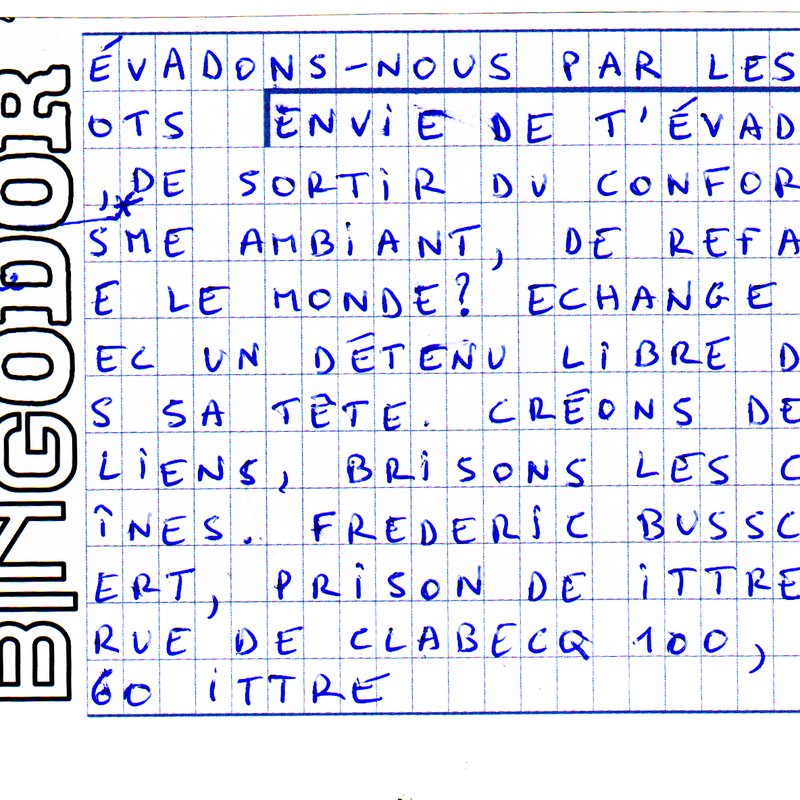 BINGODOR
ÉVADONS-NOUS PAR LES
OTS ENVIE DE T'ÉVAD
, DE SORTIR DU CONFOR
SME AMBIANT, DE REFA
E LE MONDE? ECHANGE
EC UN DÉTENU LIBRE D
S SA TÊTE. CRÉONS DE
LIENS, BRISONS LES C
ÎNES. FREDERIC BUSSC
ERT, PRISON DE ITTRE
RUE DE CLABECQ 100,
60 ITTRE